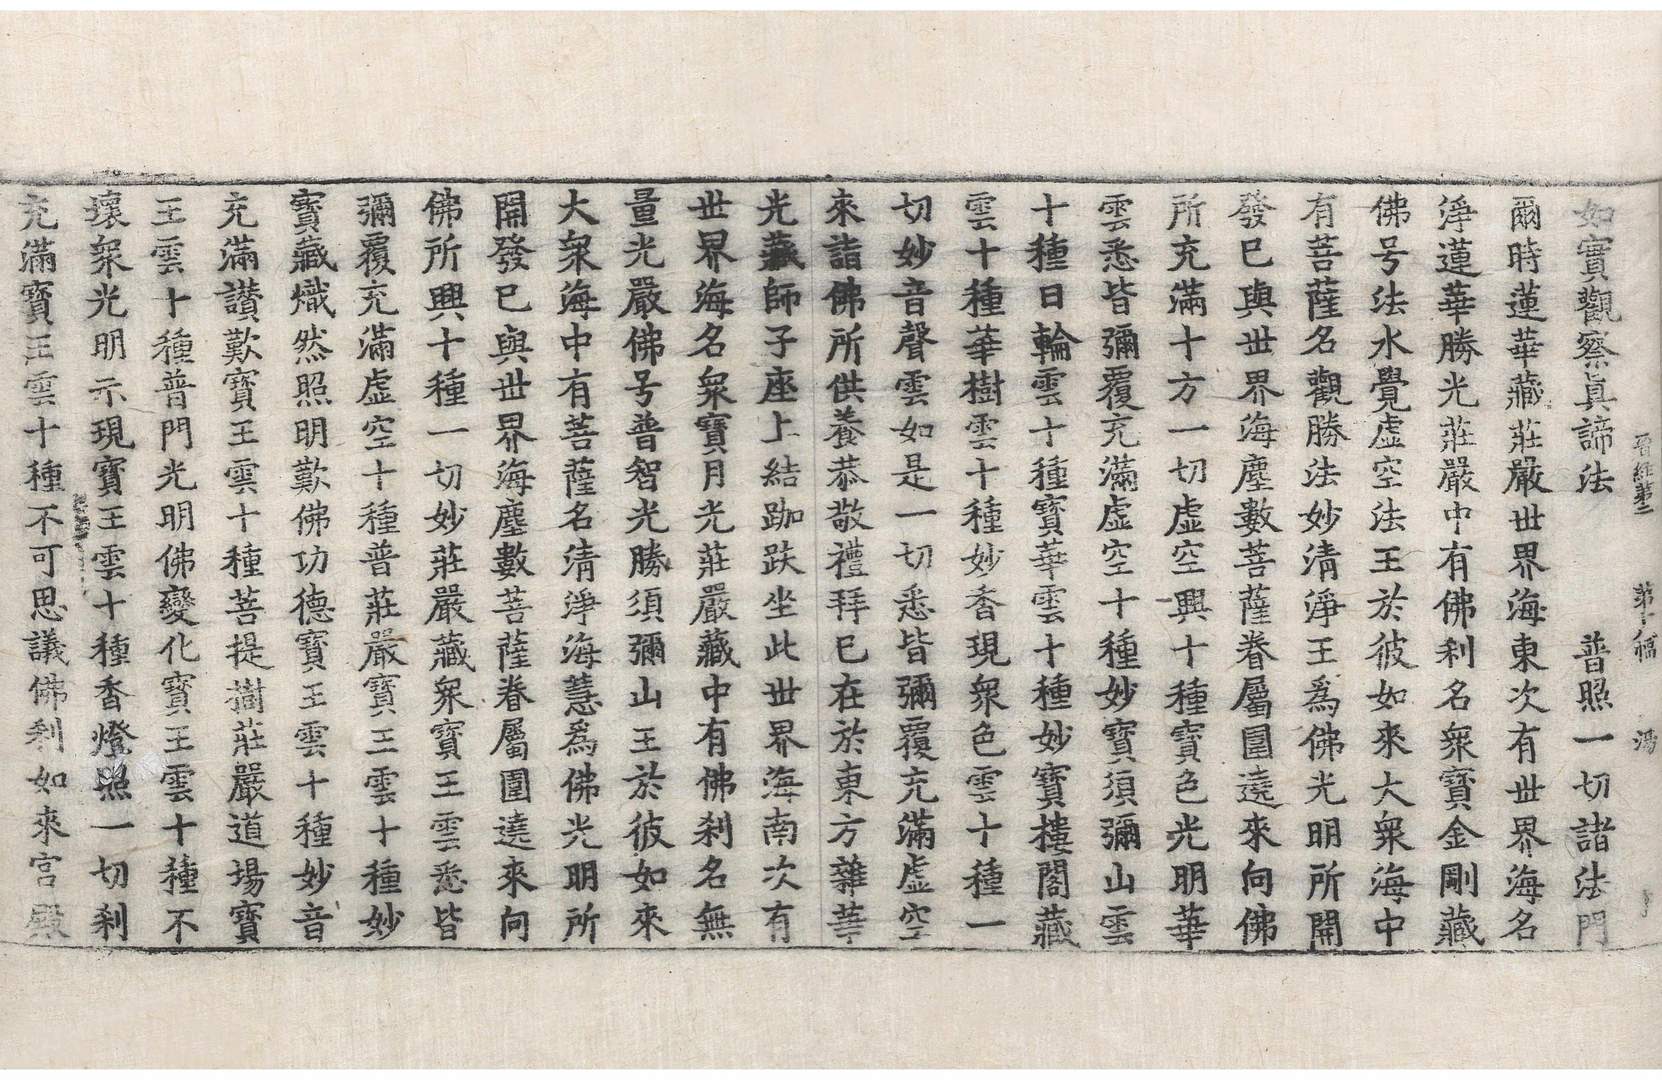 晉經第二 第十幅 馮
如實觀察真諦法 普照一切諸法門
爾時蓮華藏莊嚴世界海東次有世界海名
淨蓮華勝光莊嚴中有佛刹名衆寶金剛藏
佛号法水覺虛空法王於彼如來大衆海中
有菩薩名觀勝法妙清淨王爲佛光明所開
發已與世界海塵數菩薩眷屬圍遶來向佛
所充滿十方一切虛空興十種寶色光明華
雲悉皆彌覆充滿虛空十種妙寶須彌山雲
十種日輪雲十種寶華雲十種妙寶樓閣藏
雲十種華樹雲十種妙香現衆色雲十種一
切妙音聲雲如是一切悉皆彌覆充滿虛空
來詣佛所供養恭敬禮拜已在於東方雜華
光藏師子座上結跏趺坐此世界海南次有
世界海名衆寶月光莊嚴藏中有佛刹名無
量光嚴佛号普智光勝須彌山王於彼如來
大衆海中有菩薩名清淨海慧爲佛光明所
開發已與世界海塵數菩薩眷屬圍遶來向
佛所興十種一切妙莊嚴藏衆寶王雲悉皆
彌覆充滿虛空十種普莊嚴寶王雲十種妙
寶藏熾然照明歎佛功德寶王雲十種妙音
充滿讃歎寶王雲十種菩提樹莊嚴道場寶
王雲十種普門光明佛變化寶王雲十種不
壞衆光明示現寶王雲十種香燈照一切刹
充滿寶王雲十種不可思議佛刹如來宮殿